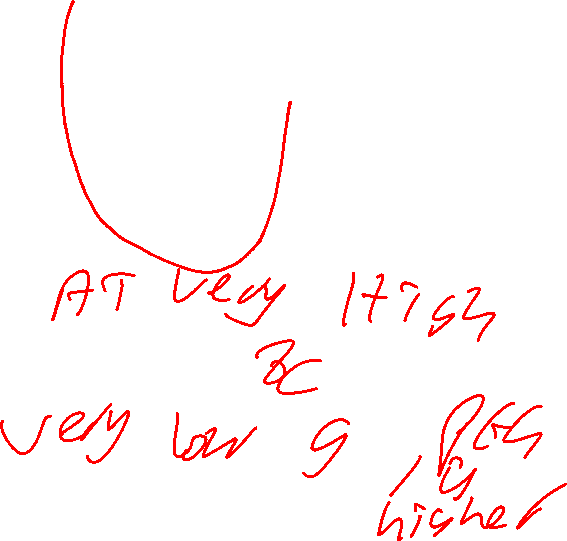 AT very High
&
very low g, PEG
is
higher